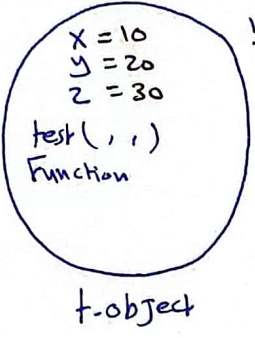 x = 10
y = 20
z = 30
test( , , )
Function
t-object